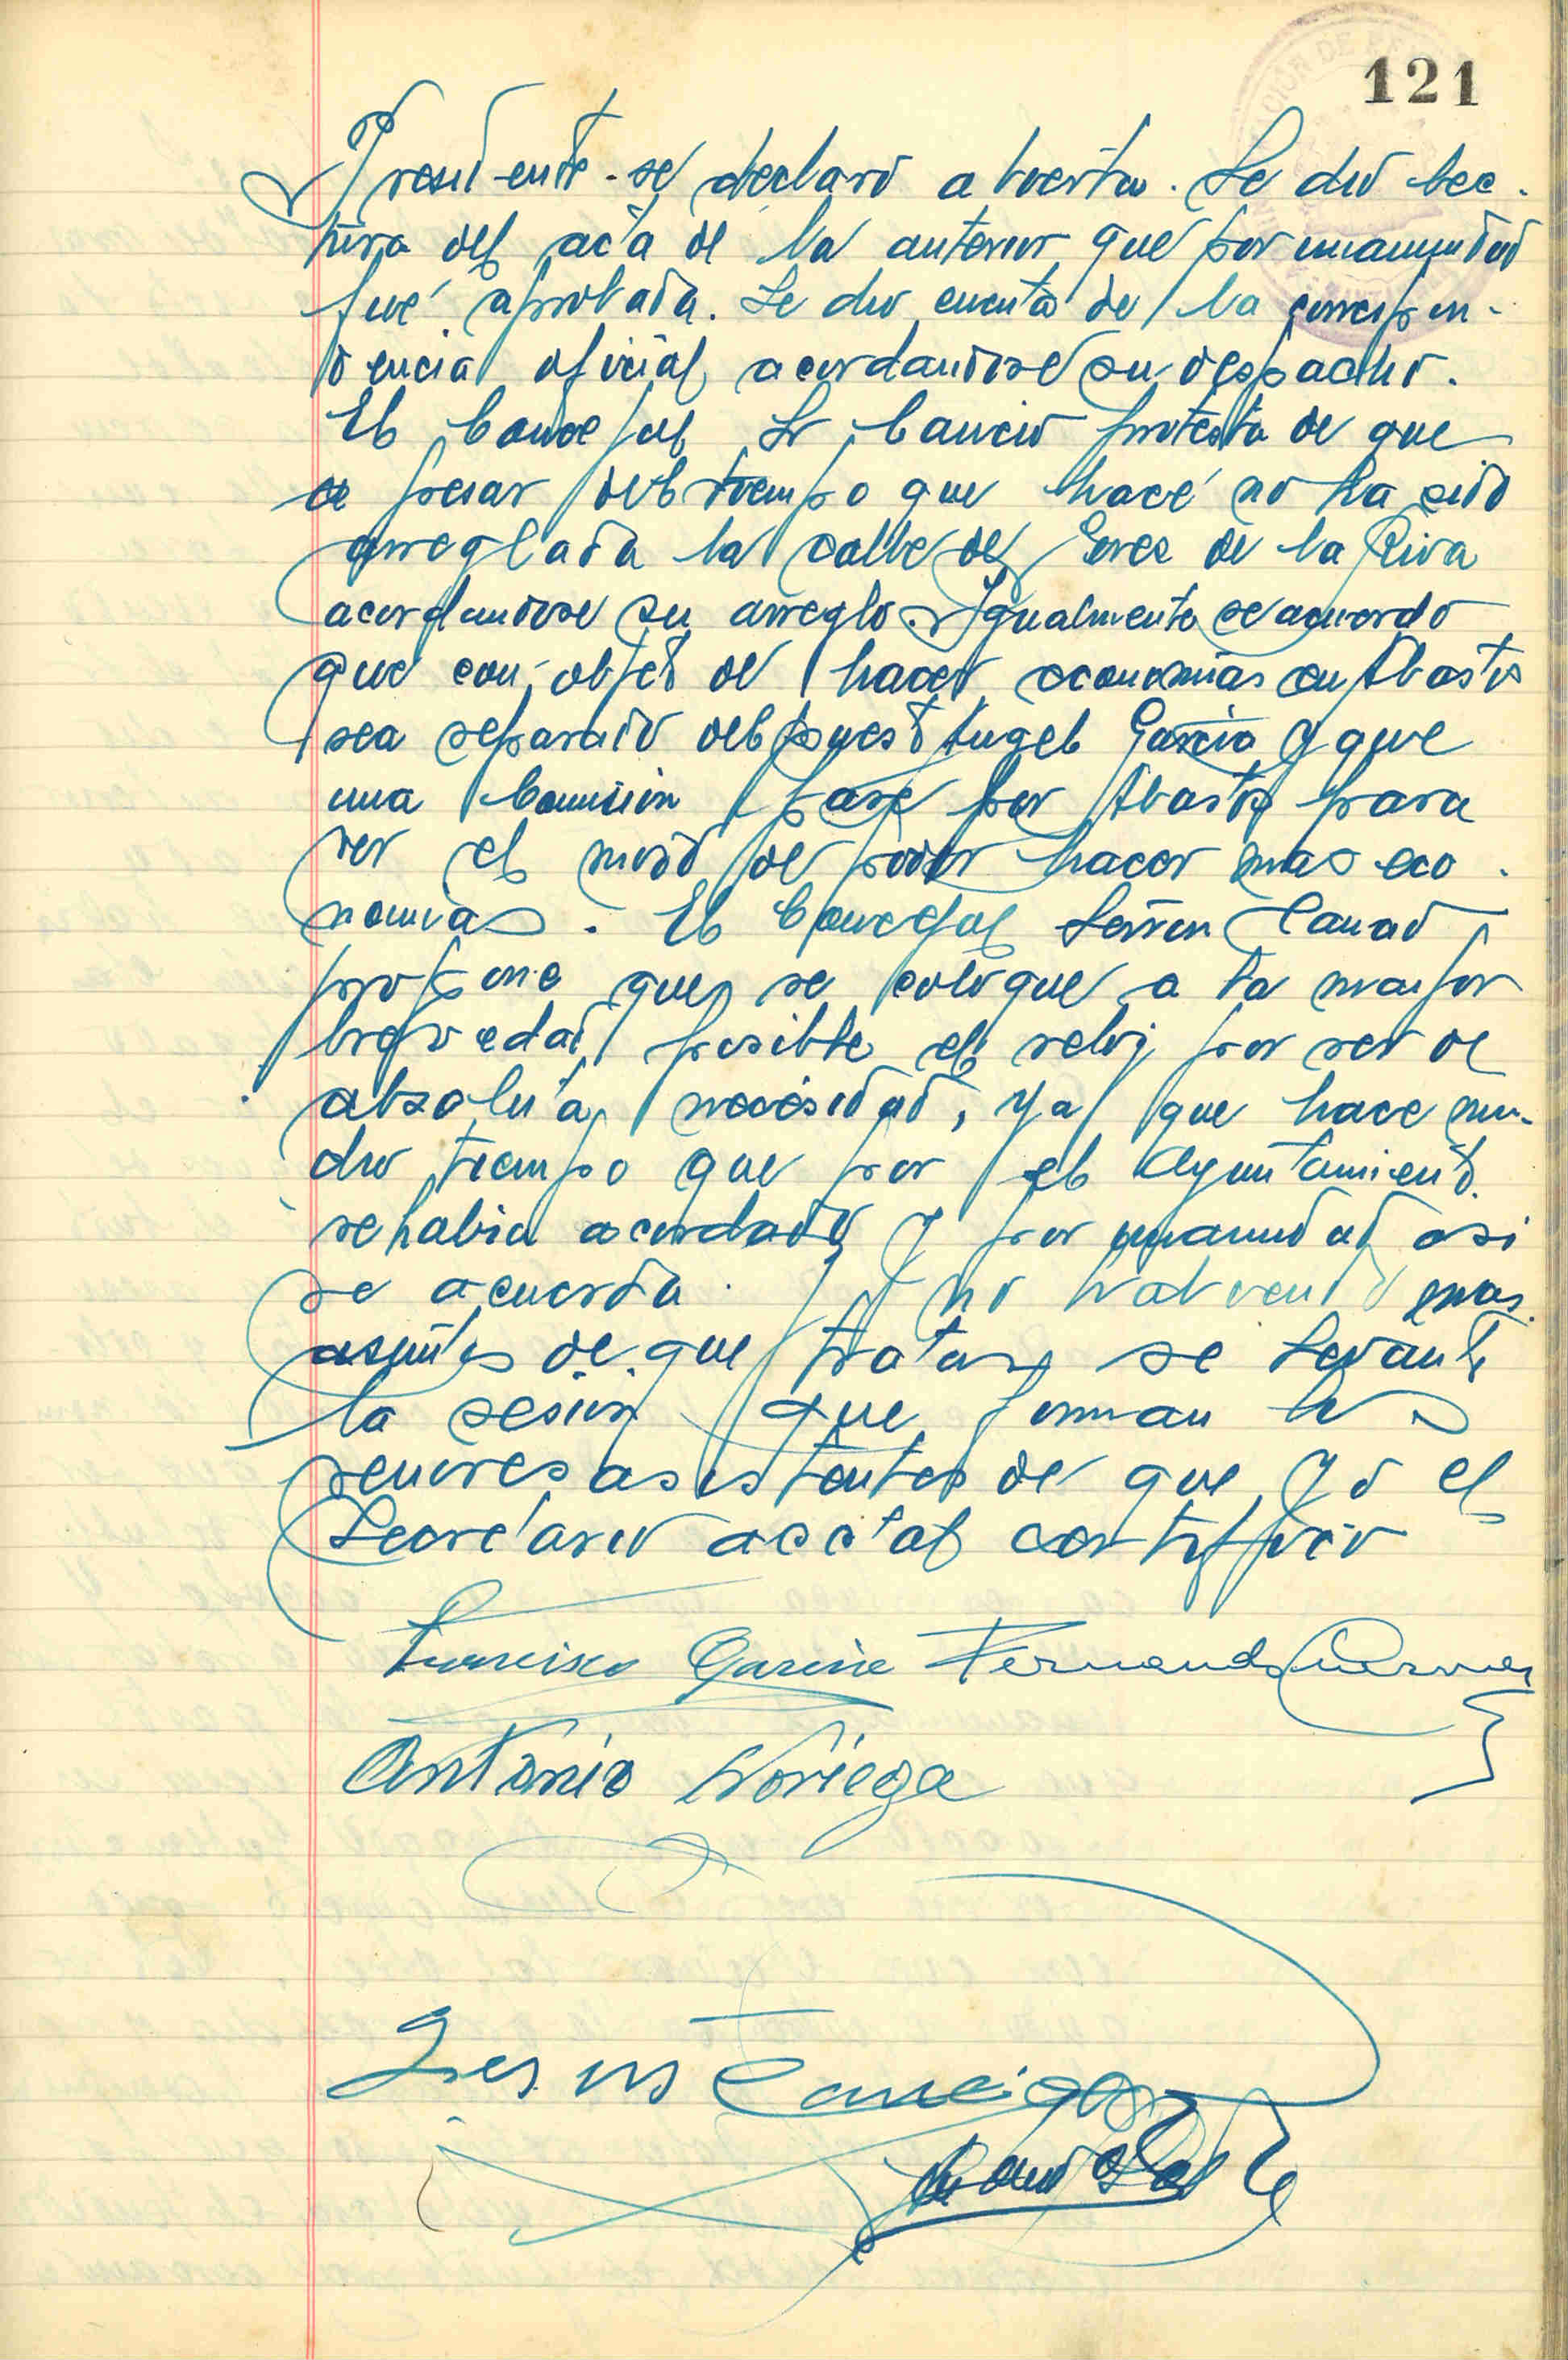 121
Presidente se declaró abierta. Se dió lec-
tura del acta de la anterior que por unanimidad
fué aprobada. Se dio cuenta de la correspon-
dencia oficial acordandose su despacho.
El Concejal Sr Cancio protesta de que
a pesar del tiempo que hace no ha sido
arreglada la calle de de la Riva
acordandose su arreglo. Igualmente se acordo
que con objeto de hacer economias en Abastos
sea separado del puesto Angel Garcia y que
una Comision pase por Abastos para
ver el modo de poder hacer mas eco-
nomias. El Concejal Señor
propone que se coloque a la mayor
brevedad posible el reloj por ser de
absoluta necesidad, ya que hace mu-
cho tiempo que por el Ayuntamiento
se habia acordado y por unanimidad asi
se acuerda. Y no habiendo mas
asuntos de que tratar se levanto
la sesión que firman los
señores asistentes de que yo el
Secretario acctal certifico
Francisco Garcia Fernando
Antonio Noriega
Jesus Cancio